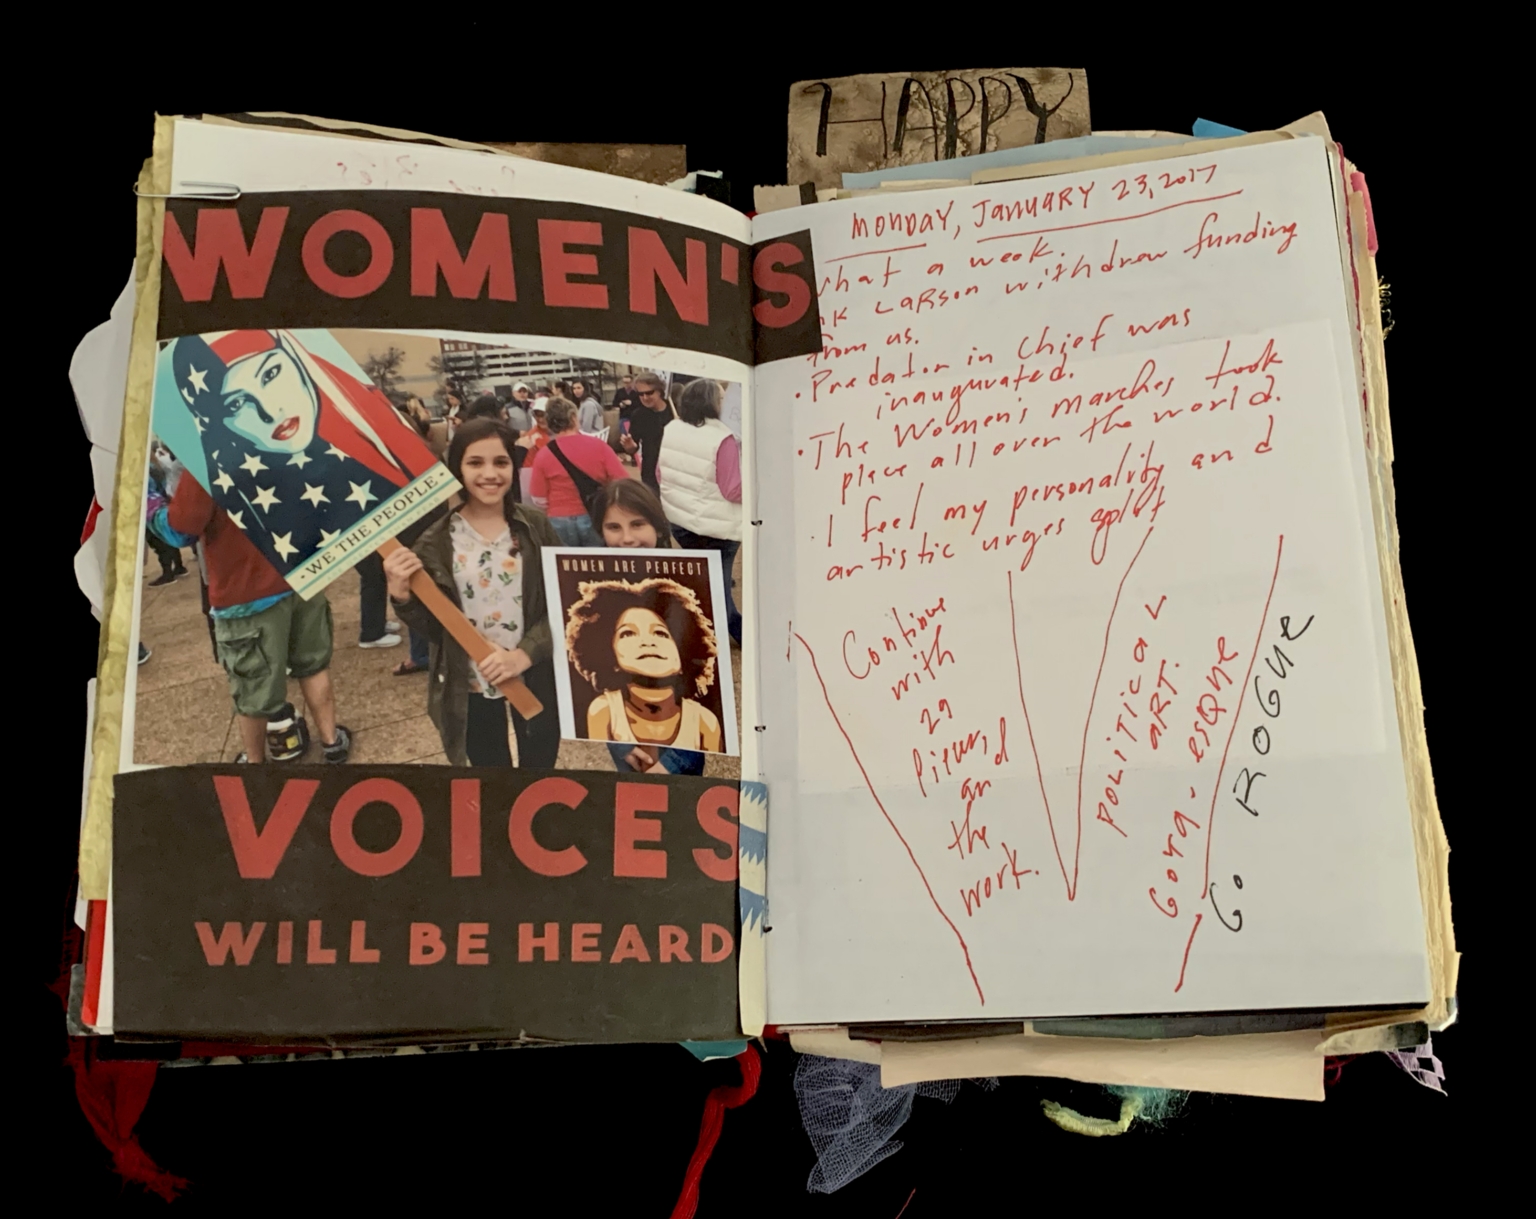 HAPPY
WOMEN'S
WE THE PEOPLE
WOMEN ARE PERFECT
VOICES
WILL BE HEARD
MONDAY, JANUARY 23, 2017
what a week.
Larson withdrew funding
from us.
• Predator in Chief was
inaugurated.
• The Women's marches took
place all over the world.
• I feel my personality and
artistic urges split
Continue
with
29
and
the
work.
POLITICAL
ART.
esque
Go ROGUE